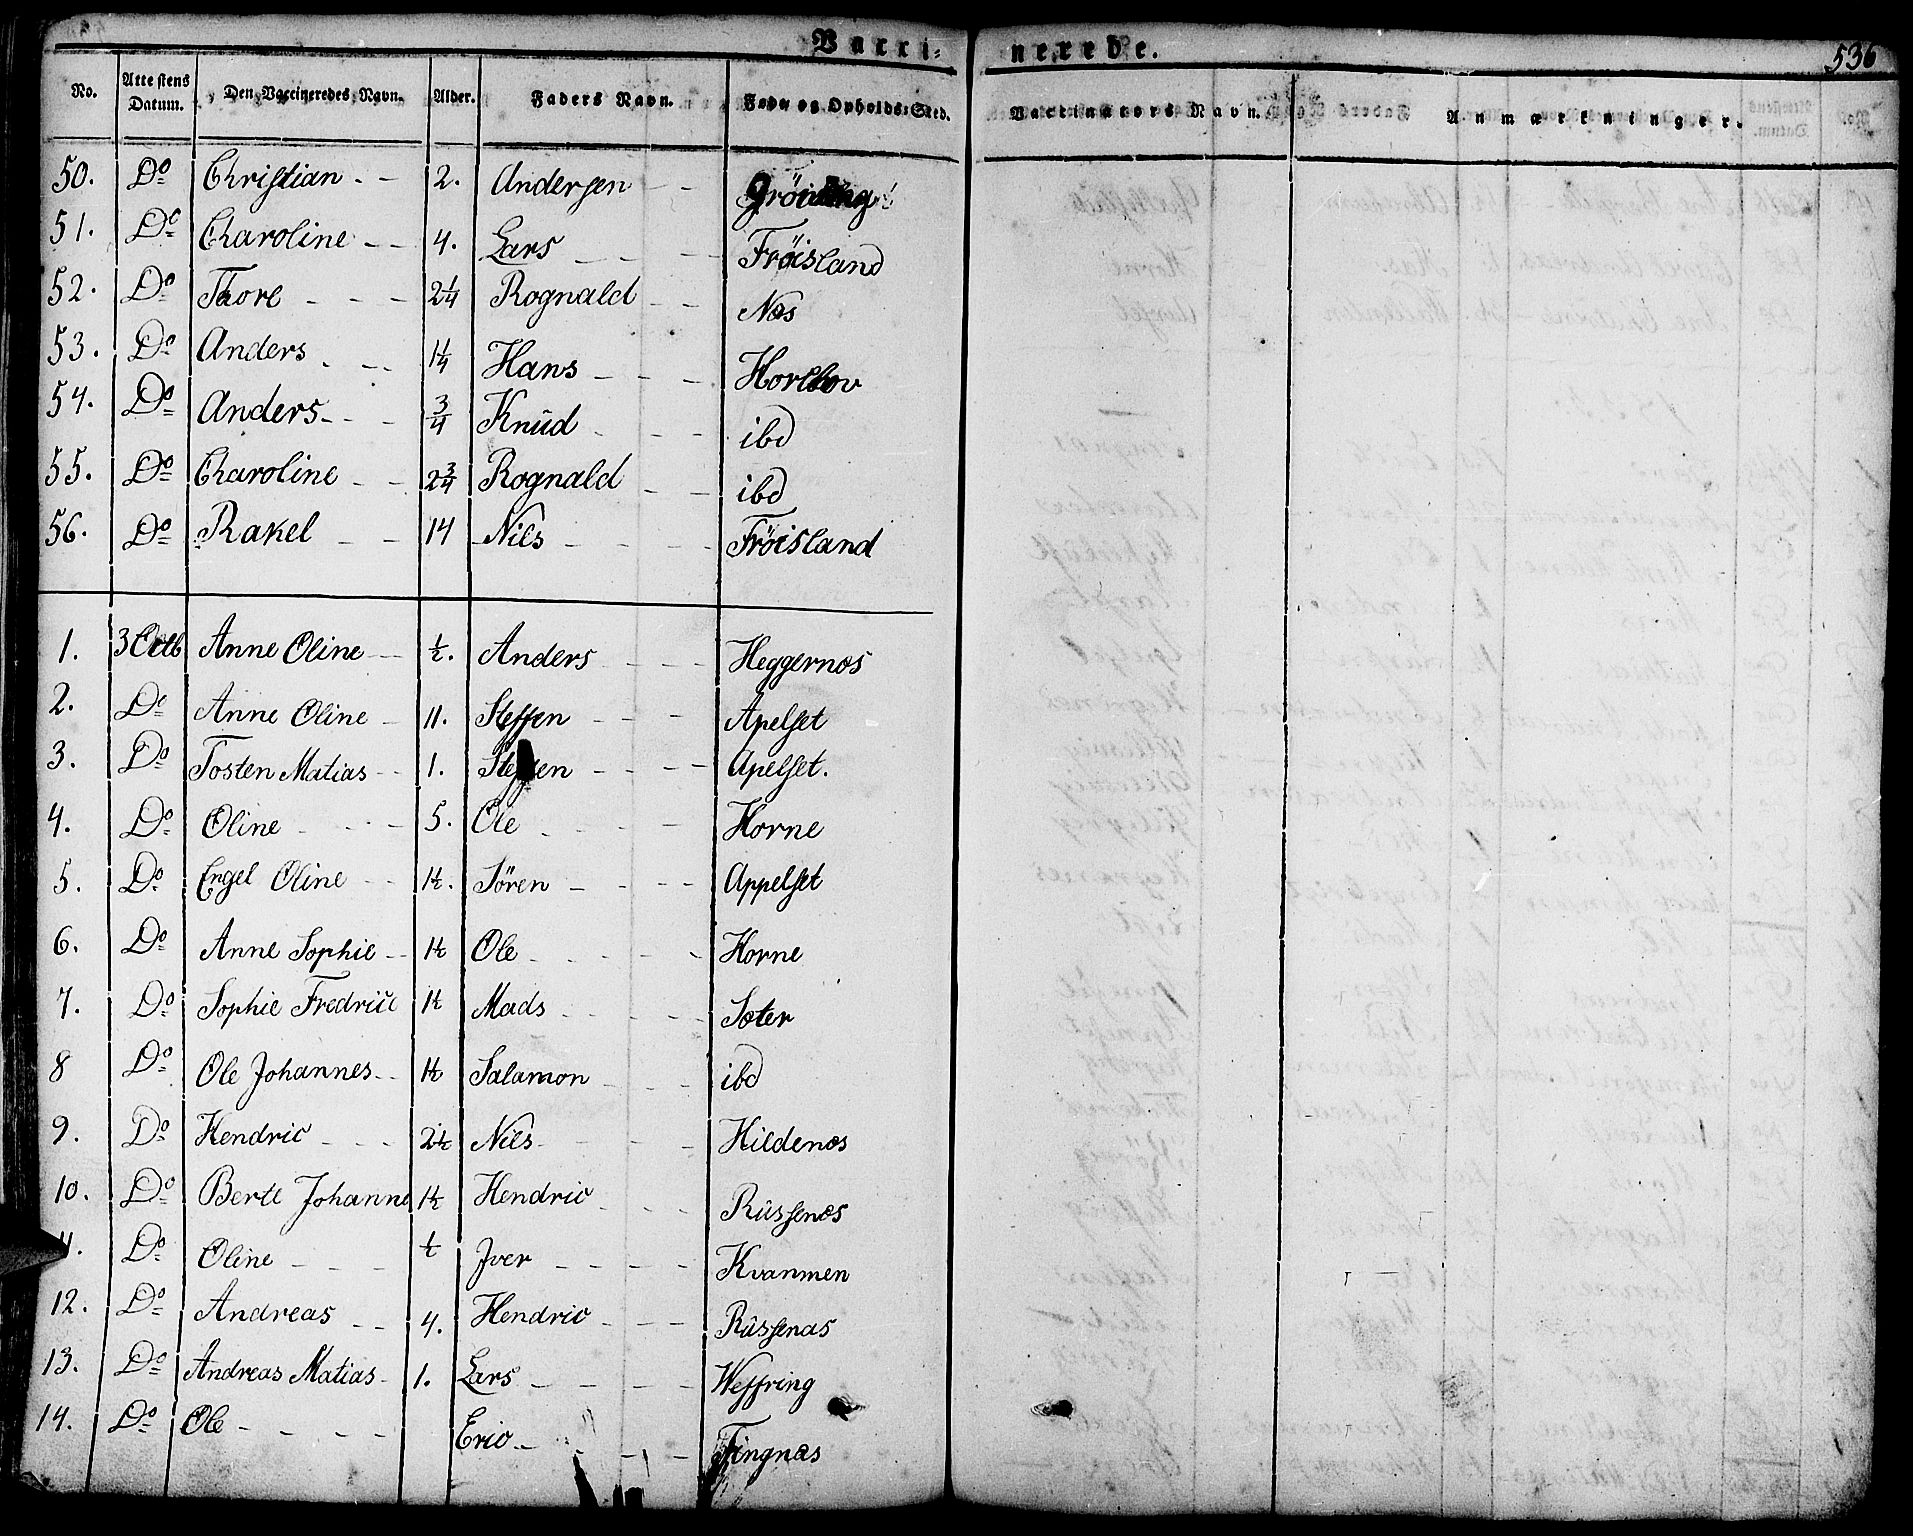 Vacci- nerede.
536
No. Attestens Datum. Den Vaccineredes Navn. Alder. Faders Navn. Føde og Opholds-Sted. Vaccinators Navn. Anmærkninger.
50. Do Christian - - 2. Andersen - -
51. Do Charoline - - 4. Lars - - - Fröisland
52. Do Thore - - - 2 1/4 Rognald - - Næs
53. Do Anders - - - 1 1/4 Hans - - -
54. Do Anders - - - 3/4 Knud - - - ibd
55. Do Charoline - - 2 3/4 Rognald - - ibd
56. Do Rakel - - 14 Nils - - - - Fröisland
1. 3 Octb Anne Oline - 1/2. Anders - - - - Heggernæs
2. Do Anne Oline - 11. Steffen - - - Apelset
3. Do Tosten Matias - - 1. Steffen - - - Apelset.
4. Do Oline - - - 5. Ole - - - - Horne
5. Do Engel Oline - - 1 1/2. Sören - - - - Appelset
6. Do Anne Sophie - - 1 1/2 Ole - - - - Horne
7. Do Sophie Fredric 1 1/2 Mads - - - - Sæter
8 Do Ole Johannes - - 1 1/2 Salamon - - - ibd
9. Do Hendric - - - 2 1/2 Nils - - - - Hildenæs
10. Do Berte Johanne 1 1/2 Hendric - - - Russenæs
11. Do Oline - - - 1/2 Iver - - - - Kvammen
12. Do Andreas - - 4. Hendric - - - Russenæs
13. Do Andreas Matias - 1. Lars - - - - Weffring
14. Do Ole - - - - Eric - - - - Tingnæs